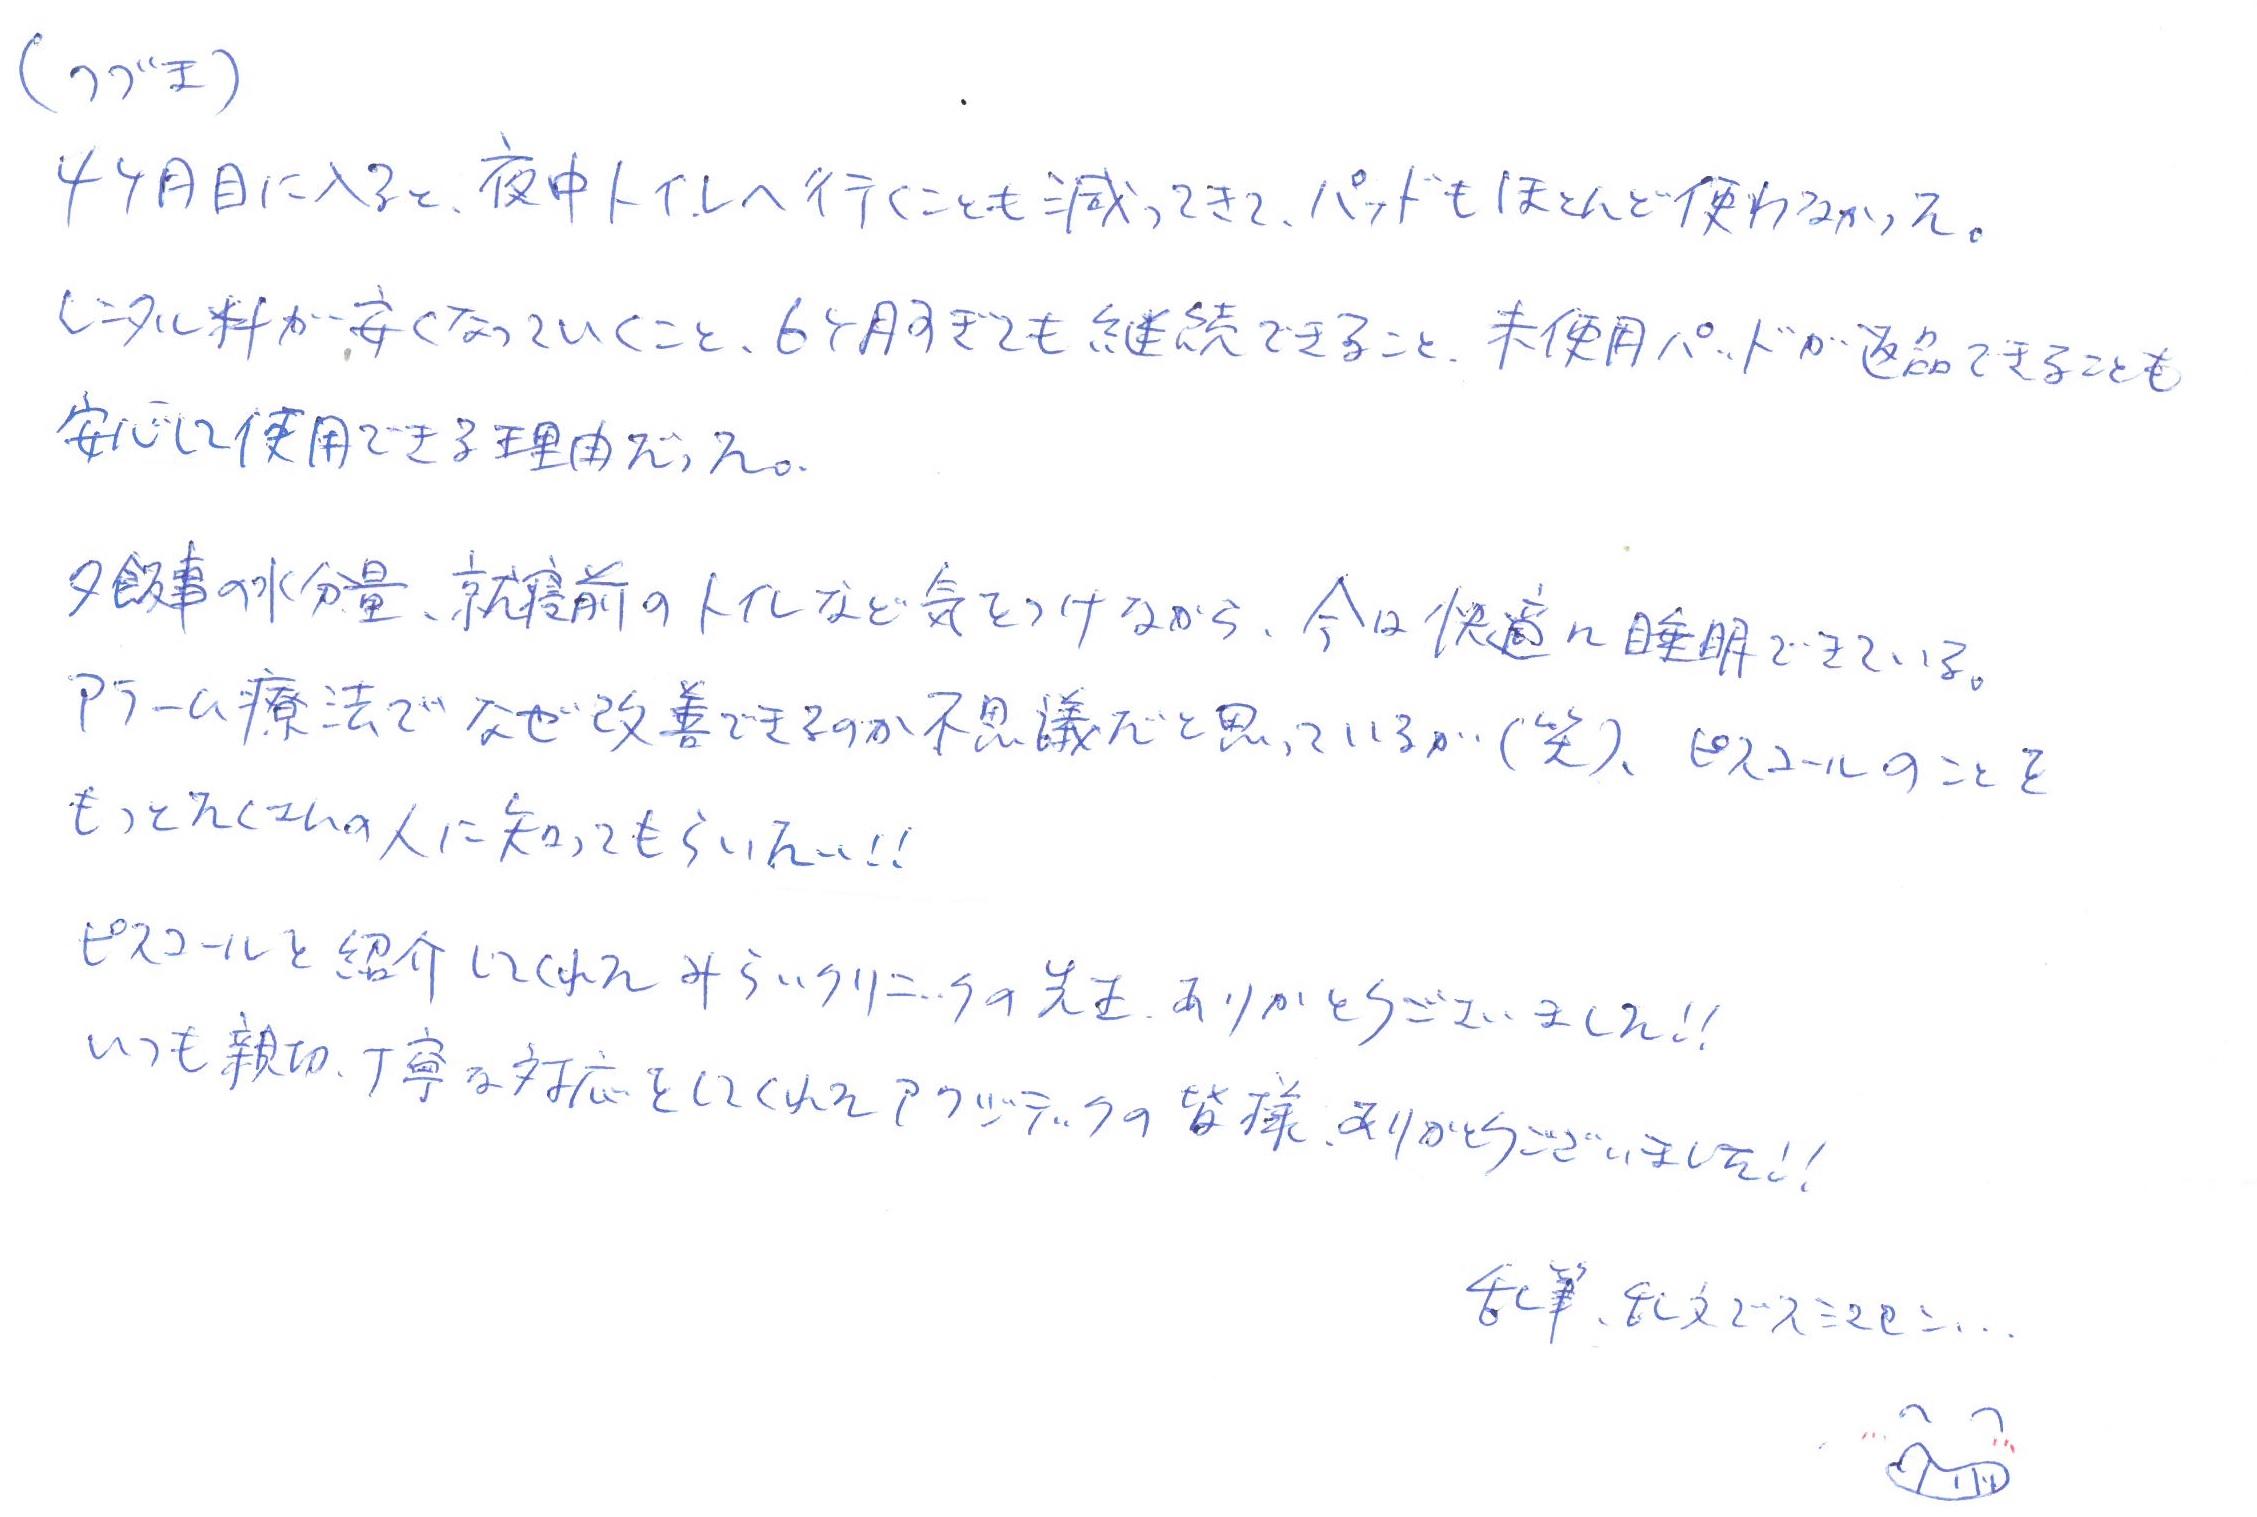 (つづき)
4ヶ月目に入ると、夜中トイレへ行くことも減ってきて、パッドもほとんど使わなかった。
レンタル料が安くなっていくこと、6ヶ月すぎても継続できること、未使用パッドが返品できることも
安心して使用できる理由だった。
夕飯事の水分量、就寝前のトイレなど気をつけながら、今は快適に睡眠できている。
アラーム療法でなぜ改善できるのか不思議だと思っているが(笑)、ピスコールのことを
もっとたくさんの人に知ってもらいたい!!
ピスコールを紹介してくれた みらいクリニックの先生、ありがとうございました!!
いつも親切、丁寧な対応をしてくれた アワジテックの皆様、ありがとうございました!!
乱筆、乱文でスミマセン...